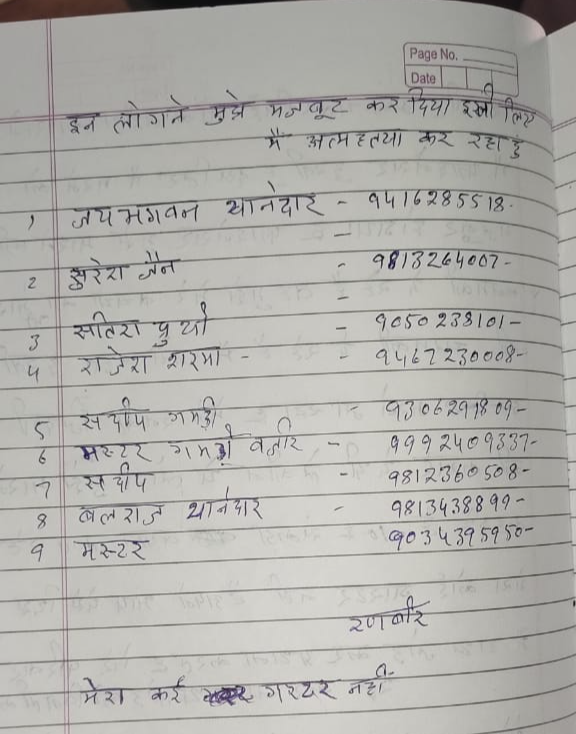 Page No.
Date
इन लोगने मुझे मजबूर कर दिया इसी लिए
मैं आत्महत्या कर रहा हु
1 जयभगवन थानेदार - 9416285518.
2 सुरेश जैन - 9813264007-
3 सतिश - 9050238101-
4 राजेश शरमा - - 9467230008-
5 सदीप - 9306291809-
6 मस्टर वजीर - 9992409337-
7 सदीप - 9812360508-
8 बलराज थानेदार - 9813438899-
9 मस्टर 9034395950-
रणबीर
मेरा कई गरटर नही